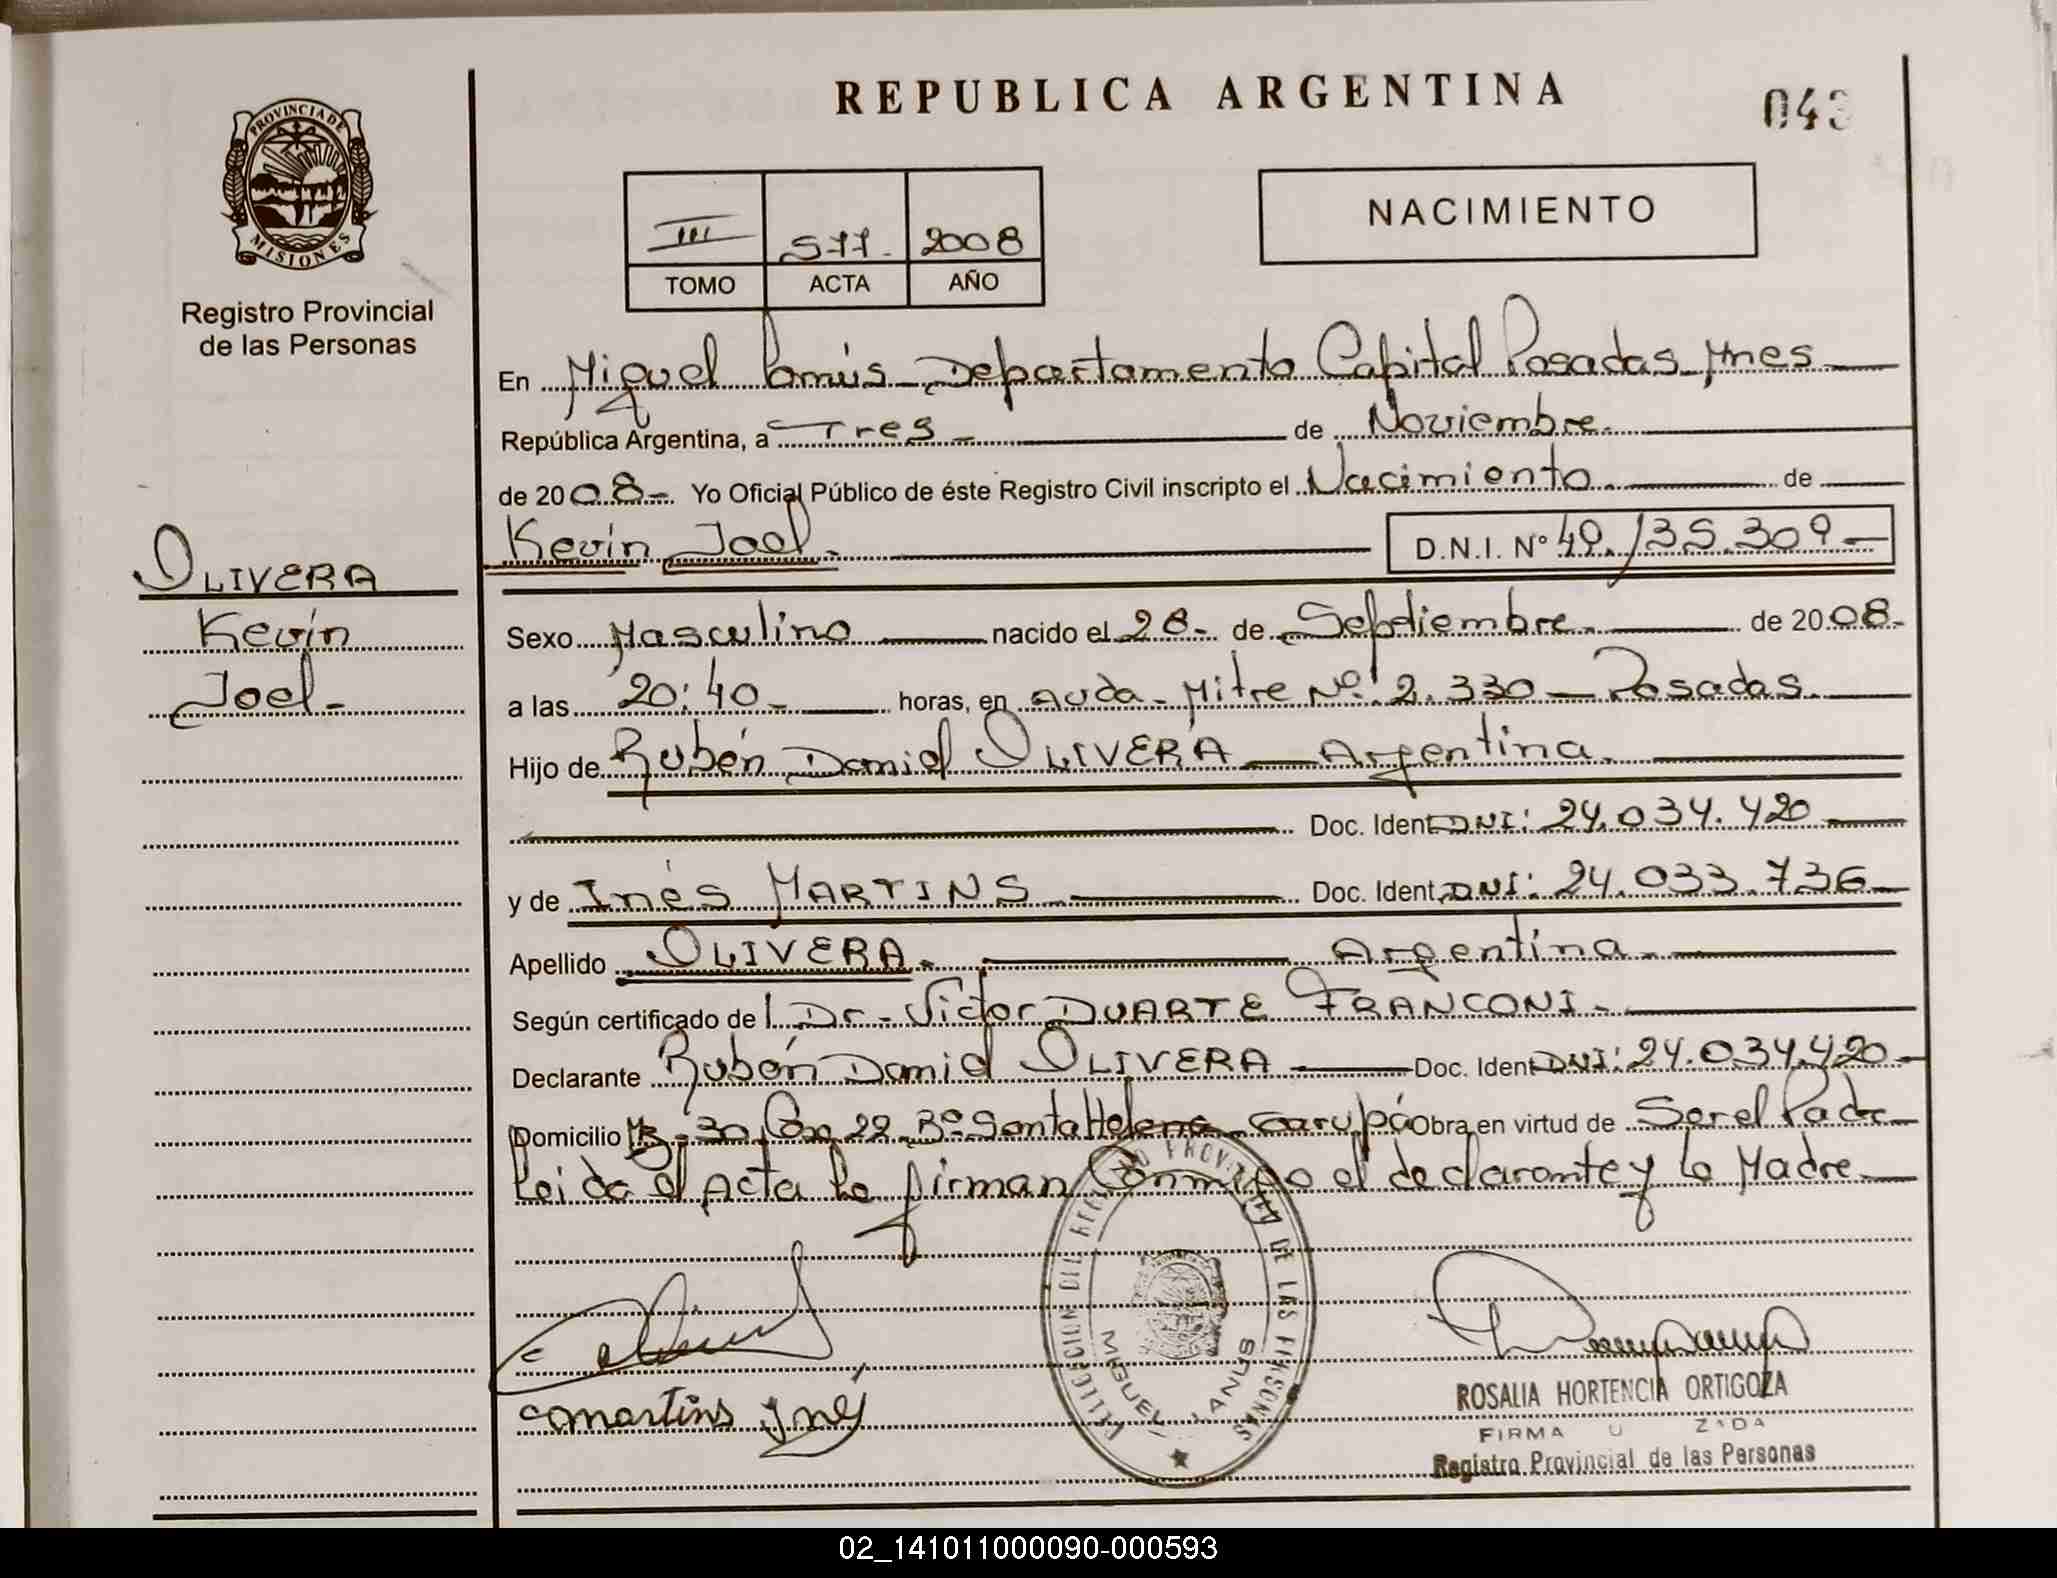 REPUBLICA ARGENTINA
043
PROVINCIA DE
MISIONES
Registro Provincial
de las Personas
III 577- 2008
TOMO ACTA AÑO
NACIMIENTO
En Miguel Lanús - Departamento Capital Posadas Mnes
República Argentina, a Tres - de Noviembre -
de 2008 - Yo Oficial Público de éste Registro Civil inscripto el Nacimiento - de
Kevin Joel - D.N.I. Nº 49.135.309 -
OLIVERA
Kevin
Joel -
Sexo Masculino nacido el 28 - de Septiembre - de 2008 -
a las 20:40 - horas, en Avda - Mitre Nº 2.330 - Posadas
Hijo de Rubén Daniel OLIVERA - Argentina
Doc. Ident DNI: 24.034.420
y de Inés MARTINS Doc. Ident DNI: 24.033.736
Apellido OLIVERA - Argentina -
Según certificado del Dr - Victor DUARTE FRANCONI -
Declarante Rubén Daniel OLIVERA Doc. Ident DNI: 24.034.420 -
Domicilio Mz - 30 Csa 22 Bº Santa Helena - Garupá Obra en virtud de Ser el Padre
Leida el Acta la firman Conmigo el declarante y la Madre
DEL REGISTRO PROVINCIAL DE LAS PERSONAS
MIGUEL LANUS
Martins Inés
ROSALIA HORTENCIA ORTIGOZA
FIRMA
Registro Provincial de las Personas
02_141011000090-000593